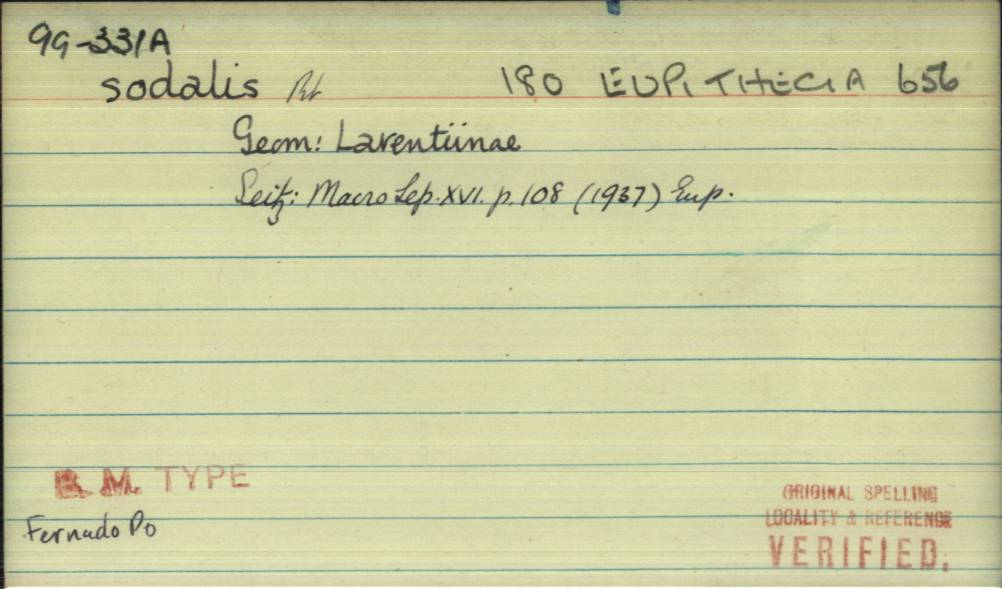 99-331A
sodalis Prt 180 EUPITHECIA 656
Geom: Larentiinae
Seitz: Macro Lep. XVI. p. 108 (1937) Eup.
B. M. TYPE
Fernado Po
ORIGINAL SPELLING
LOCALITY & REFERENCE
VERIFIED.